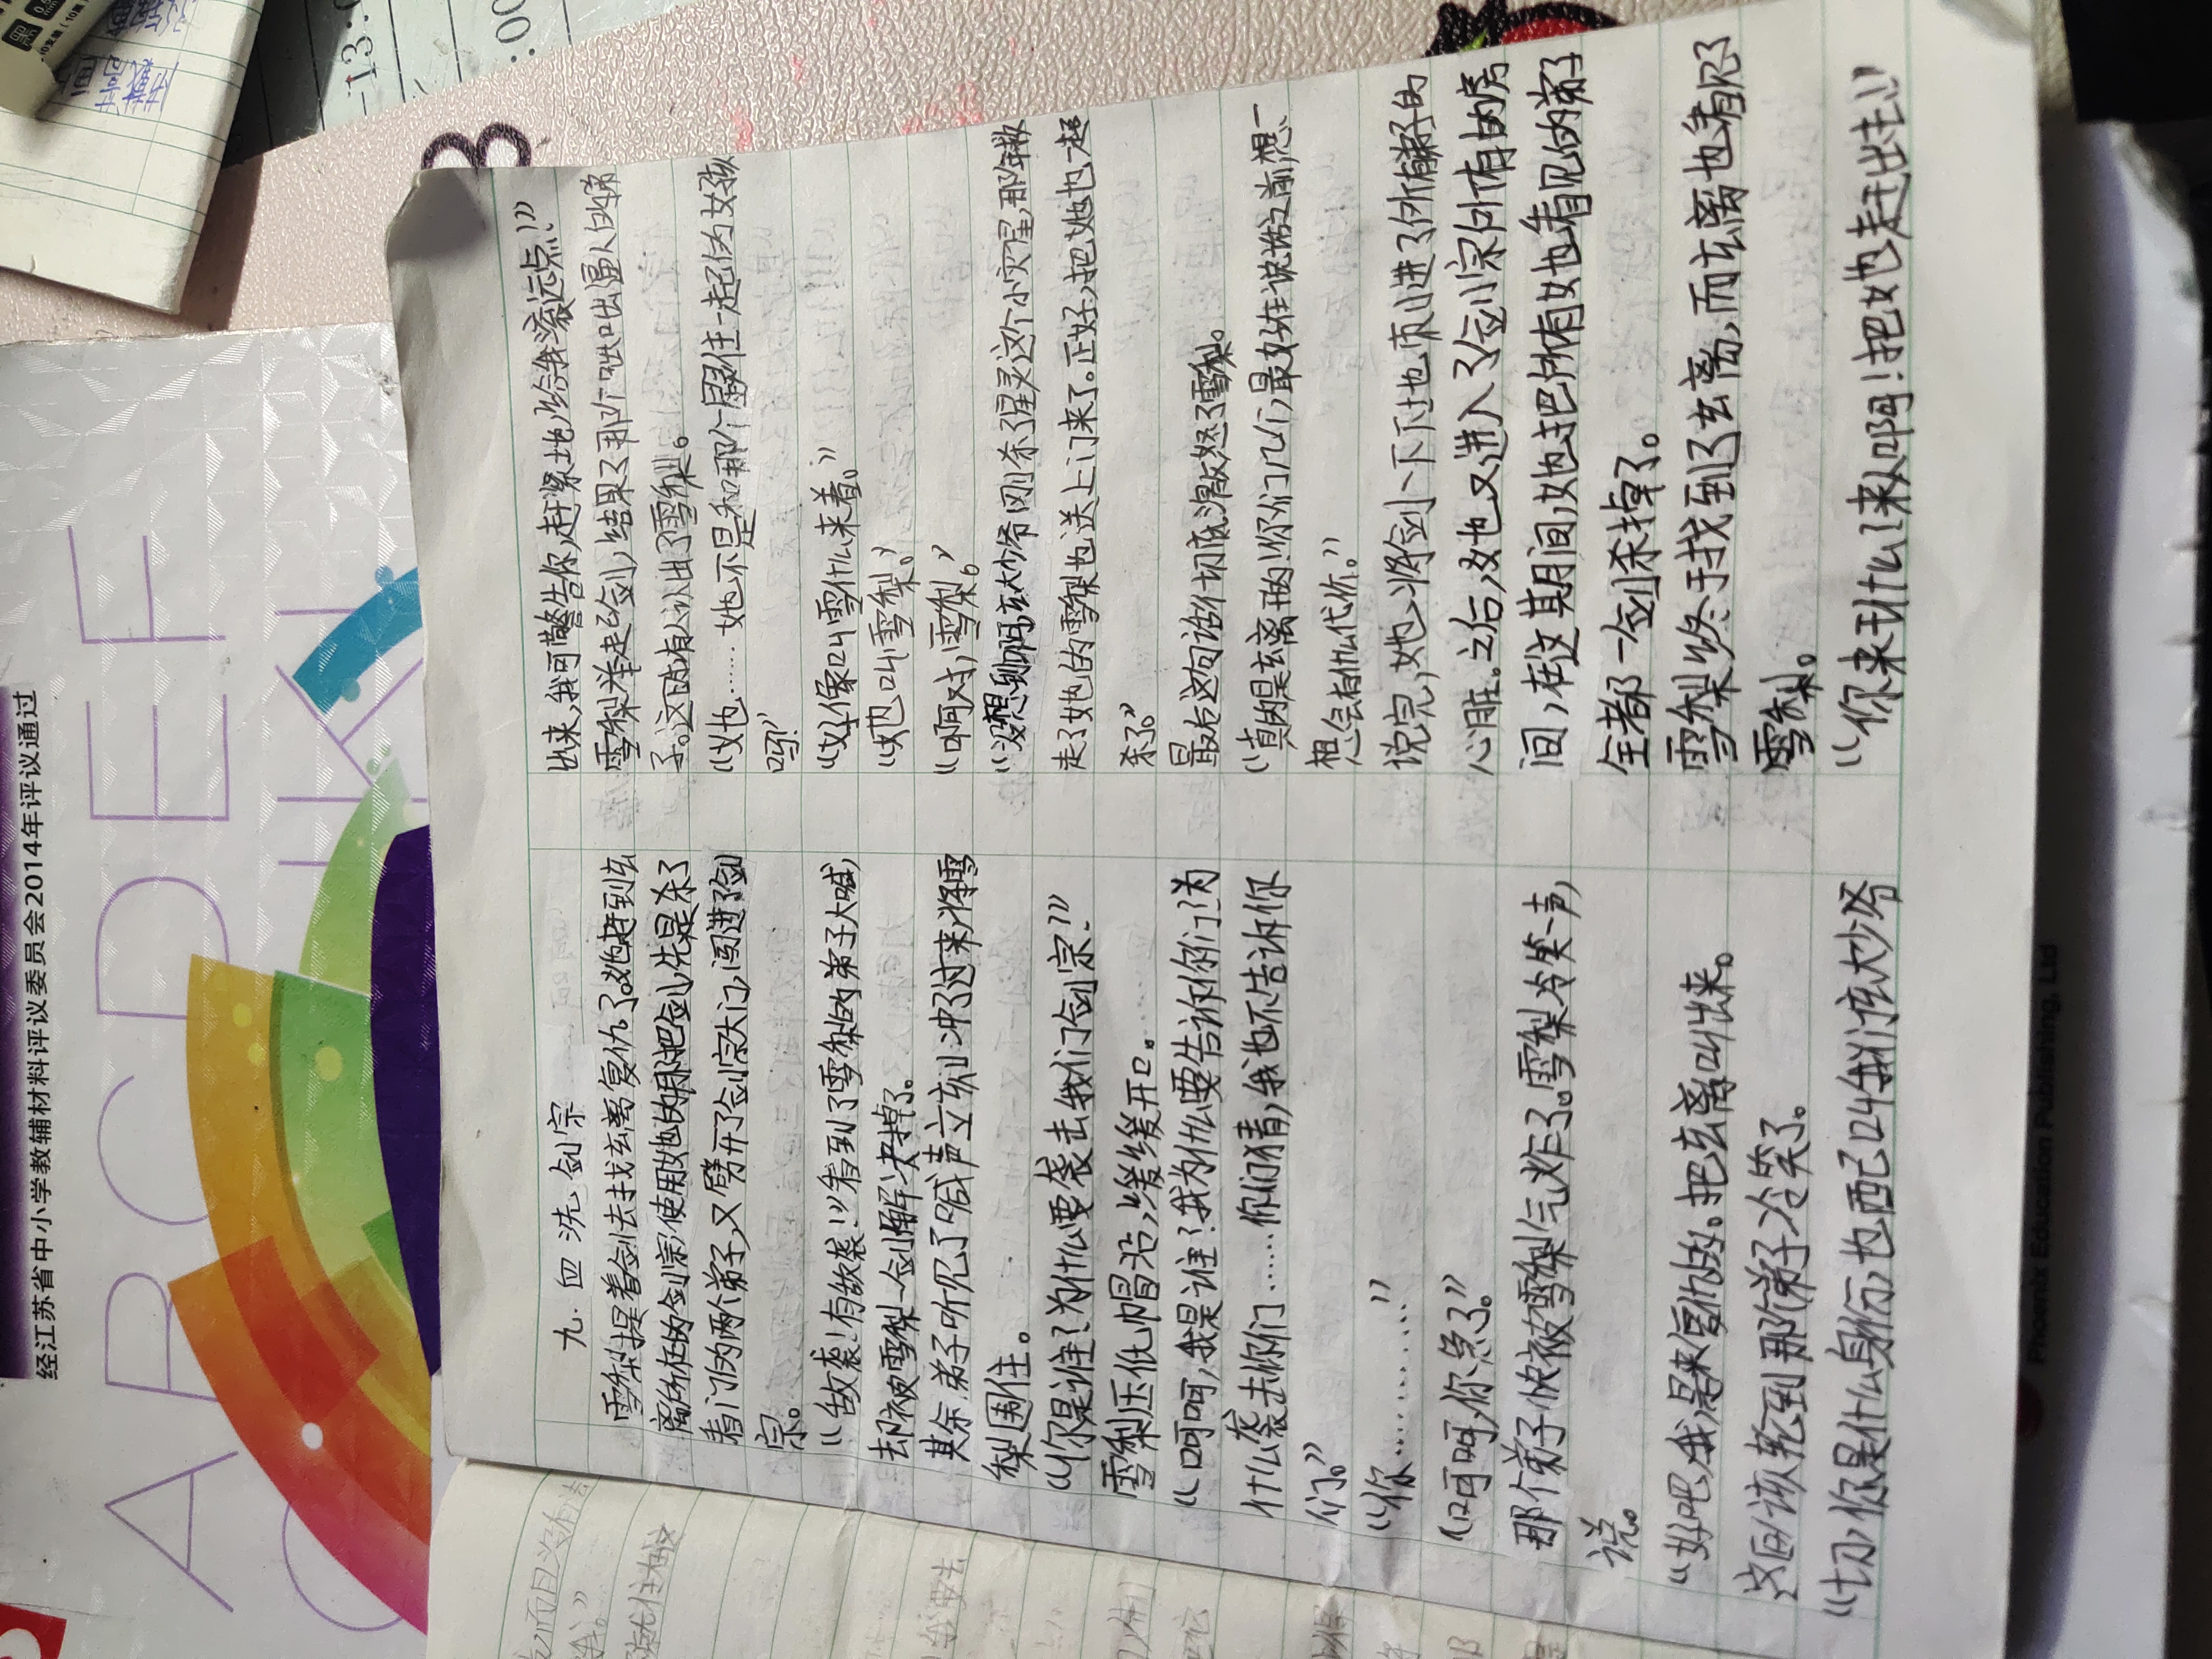 九.血洗剑宗
雪梨提着剑去找玄离复仇了。她赶到玄
离所在的剑宗,使用她的那把剑,先是杀了
看门的两个弟子,又劈开了剑宗大门,闯进了剑
宗。
“敌袭!有敌袭!”看到了雪梨的弟子大喊,
却被雪梨一剑解决掉了。
其余弟子听见了喊声立刻冲了过来,将雪
梨围住。
“你是谁?为什么要袭击我们剑宗?”
雪梨压低帽沿,缓缓开口。
“呵呵,我是谁?我为什么要告诉你们?为
什么袭击你们……你们猜,我也不告诉你
们。”
“你…………”
“呵呵,你急了。”
那个弟子快被雪梨气炸了。雪梨冷笑一声,
说。
“好吧,我是来复仇的。把玄离叫出来。
这回该轮到那弟子冷笑了。
“切,你是什么身份,也配叫我们玄大少爷
出来,我可警告你,赶紧地,给我滚远点!”
雪梨举起剑,结果了那个咄咄逼人的弟
子。这时有人认出了雪梨。
“她……她不是和那个 住一起的女孩
吗?”
“好像叫雪什么来着。”
“她叫雪梨。”
“啊对,雪梨。”
“没想到啊,玄大少爷刚杀了星灵这个小灾星,那年
走了她的雪梨也送上门来了。正好,把她也一起
杀了。”
最后这句话彻底激怒了雪梨。
“真的是玄离干的!你们几个,最好在说话之前想一
想会有什么代价。”
说完,她将剑一下下地 进了所有弟子的
心脏。之后,她又进入了剑宗所有的房
间,在这期间,她把所有她看见的弟子
全都一剑杀掉了。
雪梨终于找到了玄离,而玄离也看见了
雪梨。
“你来干什么!来人啊!把她赶出去!”
经江苏省中小学教辅材料评议委员会2014年评议通过
ABCDEF
Phoenix Education Publishing, Ltd
-13.
.00